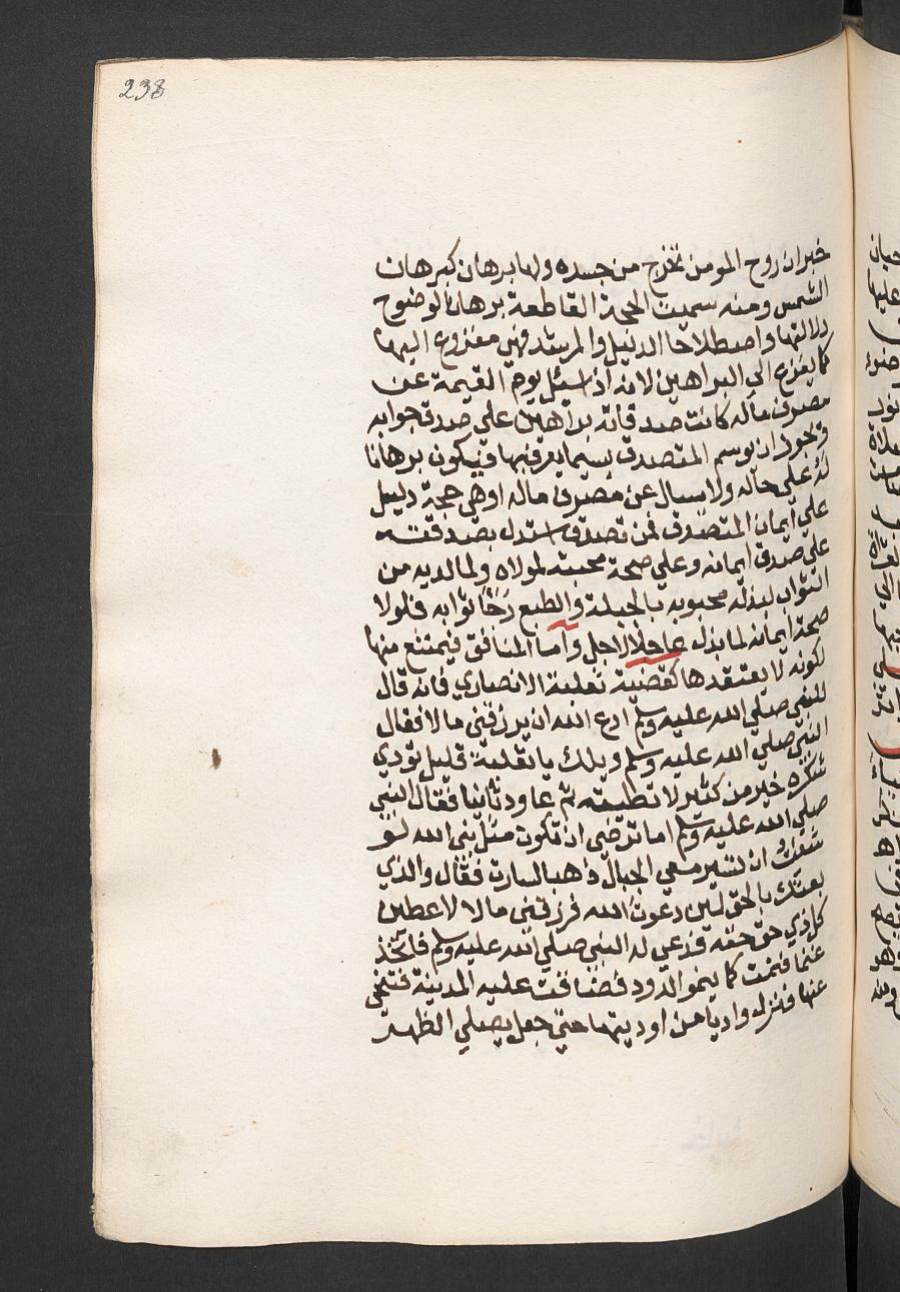 238
خبر ان روح المومن تخرج من جسده ولها برهان كبرهان
الشمس ومنه سميت الحجة القاطعة برهانا لوضوح
دلالتها واصطلاحا الدليل والمرشد فهي مفزوع اليها
كما يفزع الي البراهين لانه اذا سيئل يوم القيمة عن
مصرف ماله كانت صدقاته براهين علي صدق جوابه
ويجوز ان يوسم المتصدق بسيما يعرف بها فيكون برهانا
له علي حاله ولا يسال عن مصرف ماله اوهي حجة دليل
علي ايمان المتصدق فمن تصدق استدل بصدقته
علي صدق ايمانه وعلي صحة محبته لمولاه ولما لديه من
الثواب لبذله محبوبه بالجبلة والطبع رجا ثوابه فلولا
صحة ايمانه لما بذل عاجلا لاجل واما المنافق فيمتنع منها
لكونه لا يعتقدها كقضية ثعلبة الانصاري فانه قال
للنبي صلي الله عليه وسلم ادع الله ان يرزقني مالا فقال
النبي صلي الله عليه وسلم ويلك يا ثعلبة قليل تودي
شكره خير من كثير لا تطيقه ثم عاود ثانيا فقال النبي
صلي الله عليه وسلم اما ترضي ان تكون مثل نبي الله لو
شئت ان تسير معي الجبال ذهبا لسارت فقال والذي
بعثك بالحق لين دعوت الله فرزقني مالا لاعطين
كل ذي حق حقه فدعي له النبي صلي الله عليه وسلم فاتخذ
غنما فنمت كما ينمو الدود فضاقت عليه المدينة فتنحي
عنها فنزل واديا من اوديتها حتي جعل يصلي الظهر